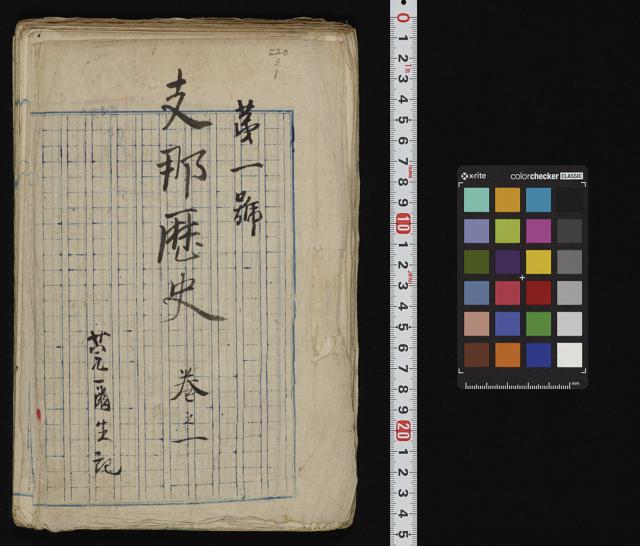 220
3
1
第一號
支那歴史
巻之一
生記
0
1
2
3
4
5
6
7
8
9
10
1
2
3
4
5
6
7
8
9
20
1
2
3
4
5
x-rite
colorchecker CLASSIC
mm